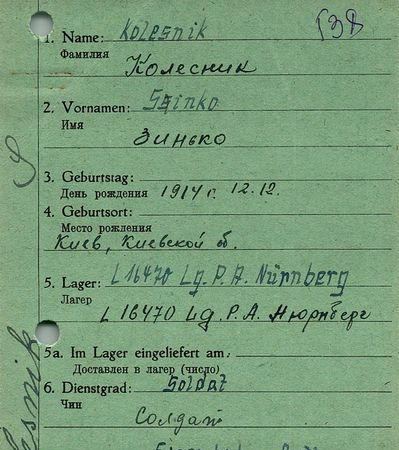 138
1. Name: Kolesnik
Фамилия
Колесник
2. Vornamen: Ssinko
Имя
Зинько
3. Geburtstag:
День рождения 1914 г. 12.12.
4. Geburtsort:
Место рождения
Киев, Киевской об.
5. Lager: L 16470 Lg. P. A. Nürnberg
Лагер
L 16470 Lg. P. A. Нюрнберг
5a. Im Lager eingeliefert am:
Доставлен в лагер (число)
6. Dienstgrad: Soldat
Чин
Солдат